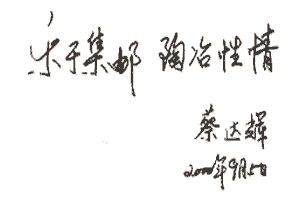 乐于集邮 陶冶性情
蔡达辉
2000年9月5日